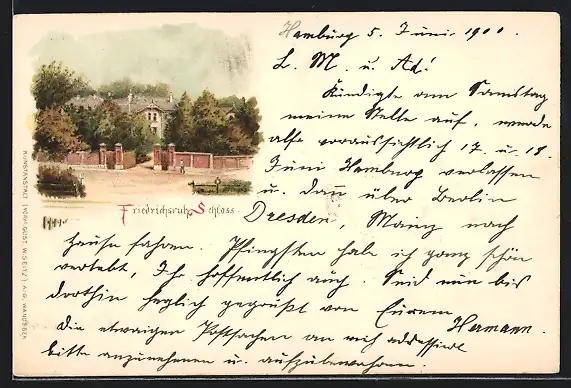 Hamburg 5. Juni 1900.
L. M. u. Ad!
Kündigte am Samstag
meine Stelle auf, werde
also voraussichtlich 17. u. 18
Juni Hamburg verlassen
u. dann über Berlin
Dresden, Mainz nach
Hause fahren. Pfingsten hab ich ganz schön
verlebt, Ihr hoffentlich auch. Seid nun bis
dorthin herzlich gegrüßt von Eurem
Hermann.
Die etwaigen Postsachen an mich addressiert
bitte anzunehmen u. aufzubewahren.
Friedrichsruh, Schloss
KUNSTANSTALT (VORM. GUST. W. SEITZ) A.-G. WANDSBEK